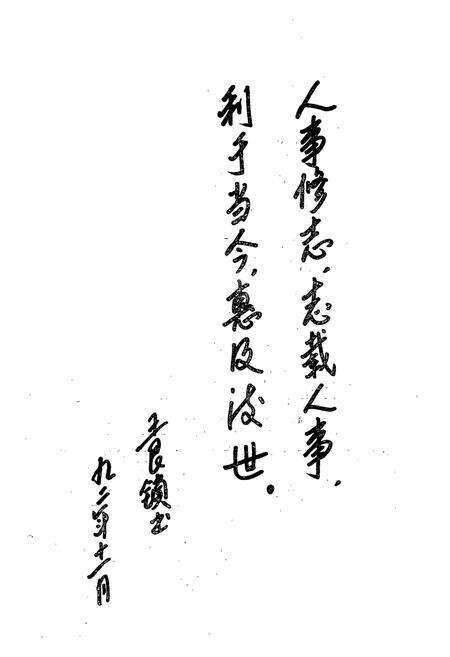 人事修志，志载人事，
利于当今，惠及后世。
王良镇书
九二年十一月